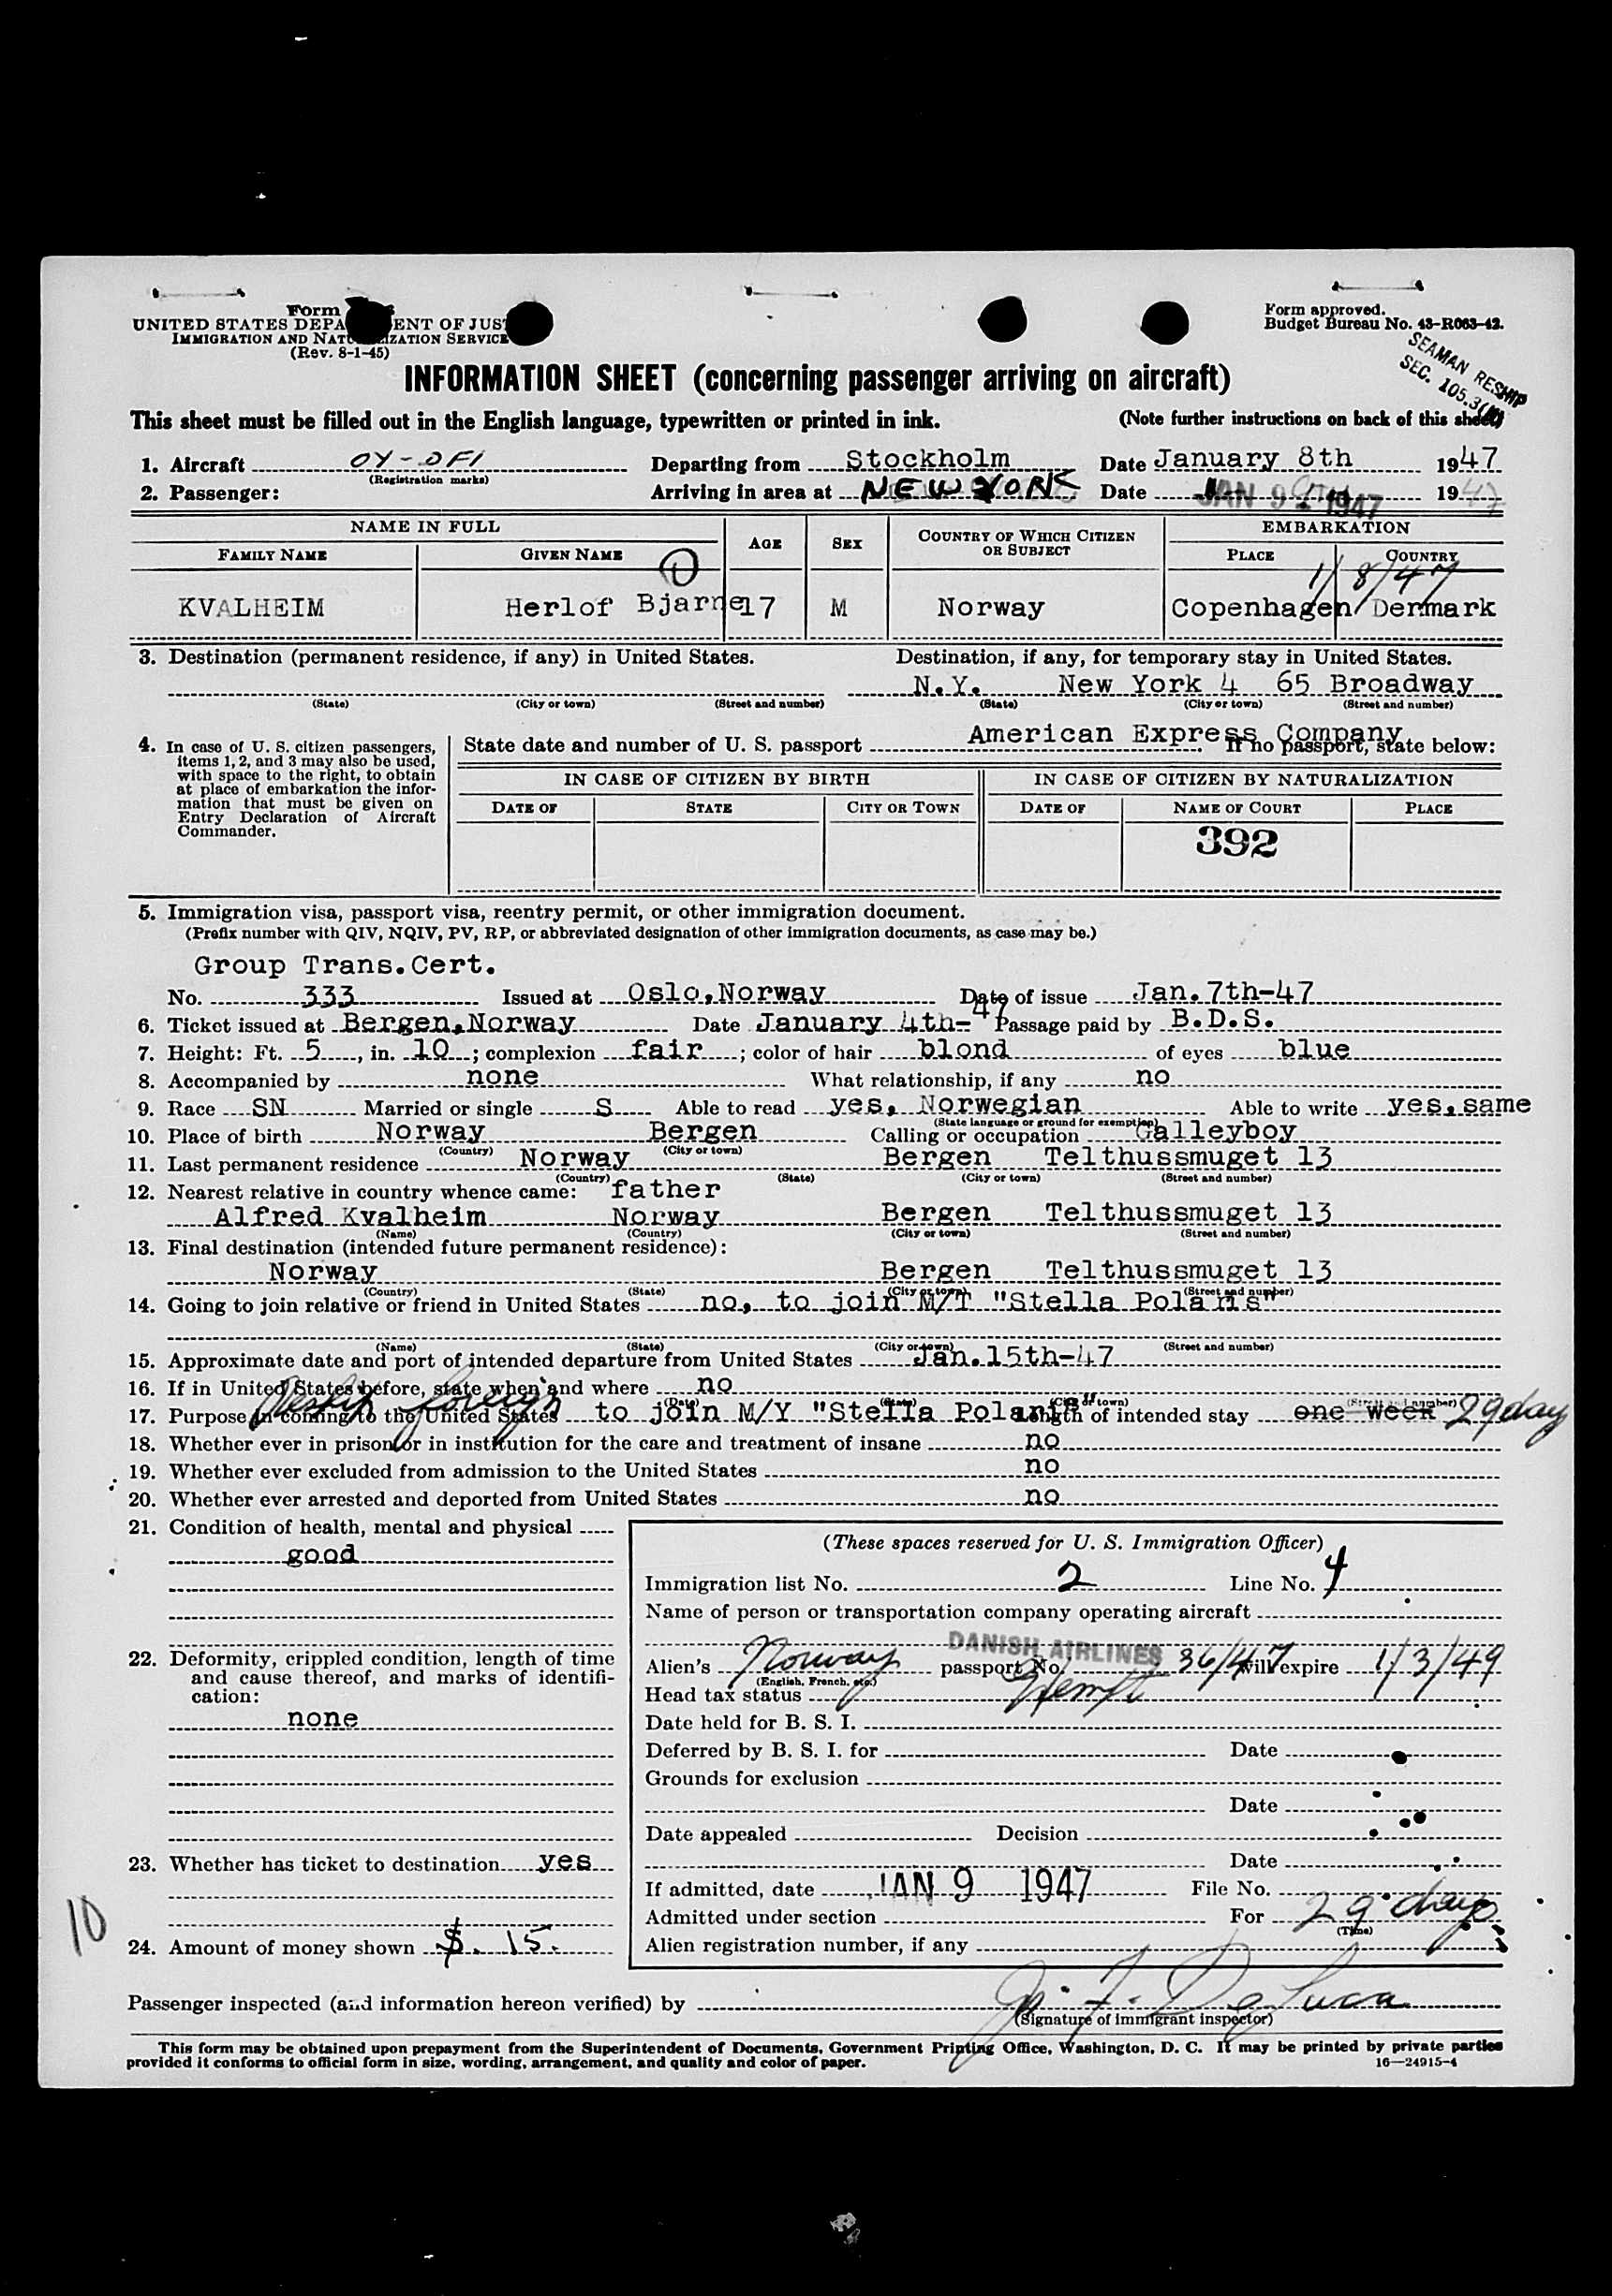 Form
UNITED STATES DEPA ENT OF JUS
IMMIGRATION AND NAT IZATION SERVICE
(Rev. 8-1-45)
Form approved.
Budget Bureau No. 43-R063-42.
SEAMAN RESHIP
SEC. 105.3
INFORMATION SHEET (concerning passenger arriving on aircraft)
This sheet must be filled out in the English language, typewritten or printed in ink. (Note further instructions on back of this sheet)
1. Aircraft OY-DFI Departing from Stockholm Date January 8th 1947
(Registration marks)
2. Passenger: Arriving in area at NEW YORK Date JAN 9 1947 1947
NAME IN FULL AGE SEX COUNTRY OF WHICH CITIZEN OR SUBJECT EMBARKATION
FAMILY NAME GIVEN NAME PLACE COUNTRY
1/8/47
KVALHEIM Herlof Bjarne 17 M Norway Copenhagen Denmark
3. Destination (permanent residence, if any) in United States. Destination, if any, for temporary stay in United States.
N.Y. New York 4 65 Broadway
(State) (City or town) (Street and number) (State) (City or town) (Street and number)
American Express Company
4. In case of U. S. citizen passengers, items 1, 2, and 3 may also be used, with space to the right, to obtain at place of embarkation the information that must be given on Entry Declaration of Aircraft Commander.
State date and number of U. S. passport If no passport, state below:
IN CASE OF CITIZEN BY BIRTH IN CASE OF CITIZEN BY NATURALIZATION
DATE OF STATE CITY OR TOWN DATE OF NAME OF COURT PLACE
392
5. Immigration visa, passport visa, reentry permit, or other immigration document.
(Prefix number with QIV, NQIV, PV, RP, or abbreviated designation of other immigration documents, as case may be.)
Group Trans.Cert.
No. 333 Issued at Oslo,Norway Date of issue Jan.7th-47
6. Ticket issued at Bergen,Norway Date January 4th-47 Passage paid by B.D.S.
7. Height: Ft. 5, in. 10; complexion fair; color of hair blond of eyes blue
8. Accompanied by none What relationship, if any no
9. Race SN Married or single S Able to read yes, Norwegian Able to write yes,same
(State language or ground for exemption)
10. Place of birth Norway Bergen Calling or occupation Galleyboy
(Country) (City or town)
11. Last permanent residence Norway Bergen Telthussmuget 13
(Country) (State) (City or town) (Street and number)
12. Nearest relative in country whence came: father
Alfred Kvalheim Norway Bergen Telthussmuget 13
(Name) (Country) (City or town) (Street and number)
13. Final destination (intended future permanent residence):
Norway Bergen Telthussmuget 13
(Country) (State) (City or town) (Street and number)
14. Going to join relative or friend in United States no, to join M/T "Stella Polaris"
(Name) (State) (City or town) (Street and number)
15. Approximate date and port of intended departure from United States Jan.15th-47
16. If in United States before, state when and where no
(Date) (State) (City or town) (Street and number)
Reship foreign
17. Purpose in coming to the United States to join M/Y "Stella Polaris" Length of intended stay one week 29 day
18. Whether ever in prison or in institution for the care and treatment of insane no
19. Whether ever excluded from admission to the United States no
20. Whether ever arrested and deported from United States no
21. Condition of health, mental and physical
good
22. Deformity, crippled condition, length of time and cause thereof, and marks of identification:
none
23. Whether has ticket to destination yes
10
24. Amount of money shown $. 15.
(These spaces reserved for U. S. Immigration Officer)
Immigration list No. 2 Line No. 4
Name of person or transportation company operating aircraft
DANISH AIRLINES
Alien's Norway passport No. 36/47 Will expire 1/3/49
(English, French, etc.)
Head tax status Exempt
Date held for B. S. I.
Deferred by B. S. I. for Date
Grounds for exclusion
Date
Date appealed Decision
Date
If admitted, date JAN 9 1947 File No.
Admitted under section For 29 days
(Time)
Alien registration number, if any
Passenger inspected (and information hereon verified) by F. DeLuca
(Signature of immigrant inspector)
This form may be obtained upon prepayment from the Superintendent of Documents, Government Printing Office, Washington, D. C. It may be printed by private parties
provided it conforms to official form in size, wording, arrangement, and quality and color of paper. 16—24915-4